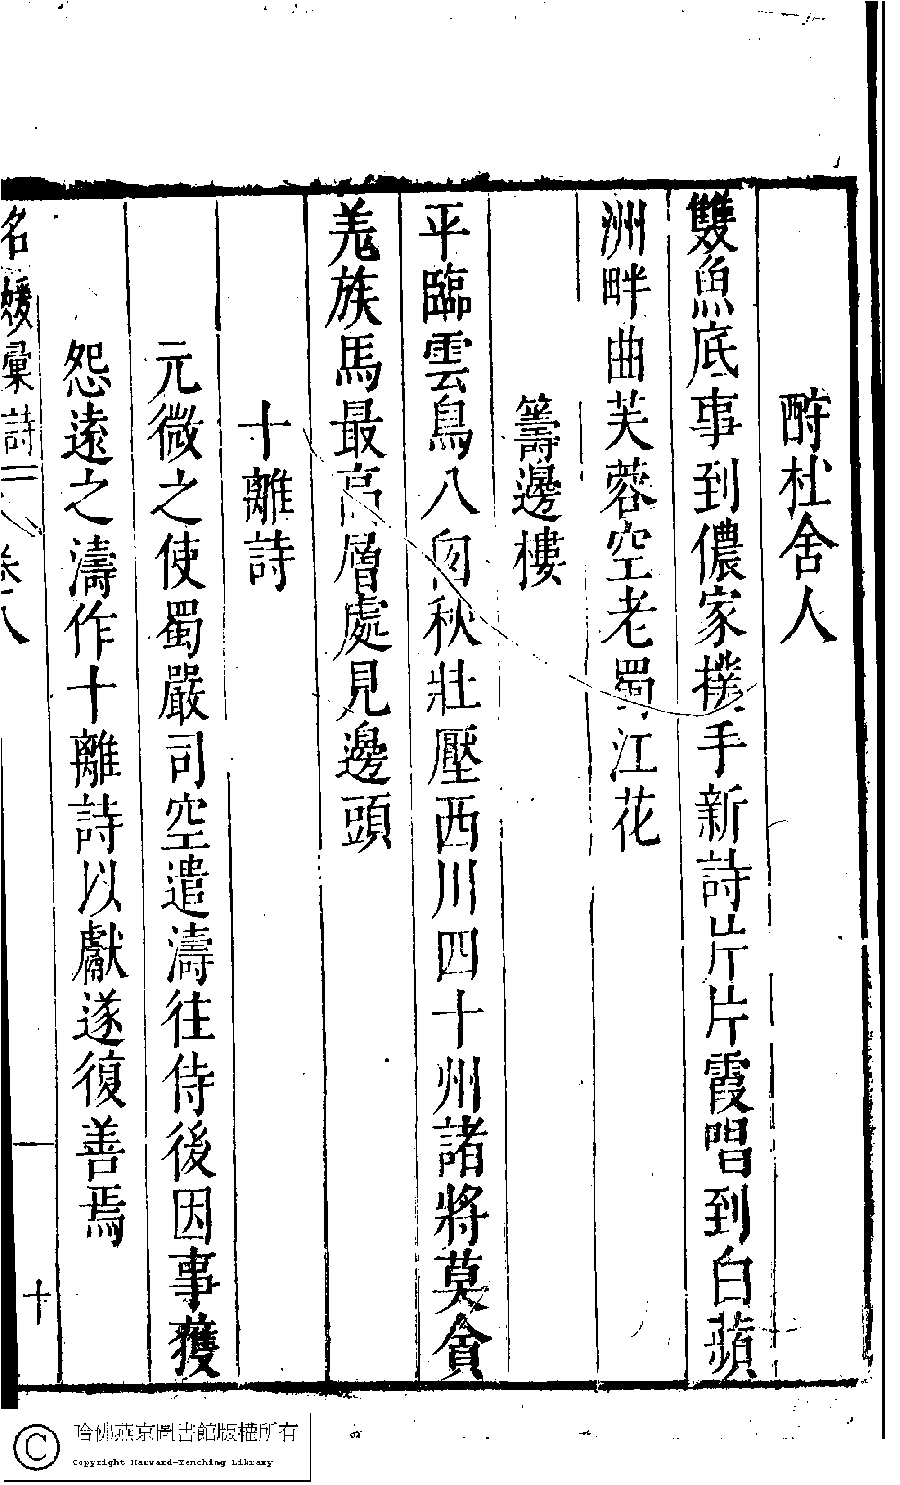 酧杜舍人
雙魚底事到儂家撲手新詩片片霞唱到白蘋
洲畔曲芙蓉空老蜀江花
籌邊樓
平臨雲鳥八囱秋壯壓西川四十州諸將莫貪
羗族馬最高層處見邊頭
十離詩
元微之使蜀嚴司空遣濤往侍後因事獲
怨遠之濤作十離詩以獻遂復善焉
名媛彙詩 卷八 十
哈佛燕京圖書館版權所有
Copyright Harvard-Yenching Library